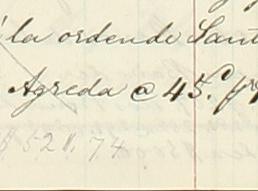 la orden de Sant
Agreda @ 45.c p
$ 521.74